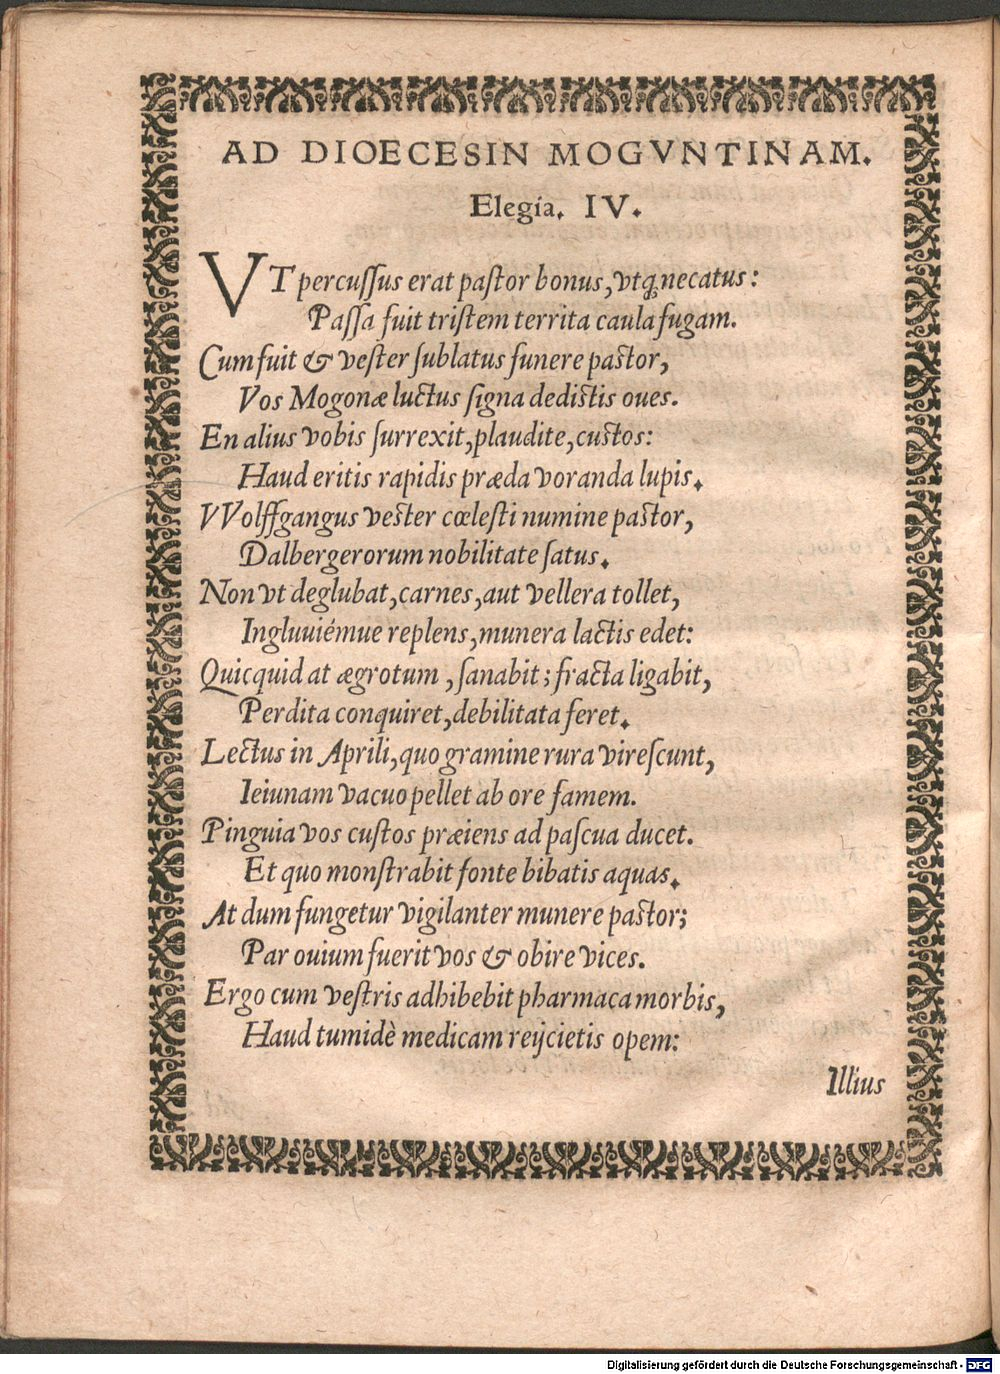 AD DIOECESIN MOGVNTINAM.
Elegia. IV.
VT percuſſus erat paſtor bonus, vtq́; necatus:
Paſſa fuit triſtem territa caula fugam.
Cum fuit & veſter ſublatus funere paſtor,
Vos Mogonæ luctus ſigna dediſtis oues.
En alius vobis ſurrexit, plaudite, cuſtos:
Haud eritis rapidis præda voranda lupis.
VVolffgangus veſter cœleſti numine paſtor,
Dalbergerorum nobilitate ſatus.
Non vt deglubat, carnes, aut vellera tollet,
Ingluuiémue replens, munera lactis edet:
Quicquid at ægrotum, ſanabit; fracta ligabit,
Perdita conquiret, debilitata feret.
Lectus in Aprili, quo gramine rura vireſcunt,
Ieiunam vacuo pellet ab ore famem.
Pinguia vos cuſtos præiens ad paſcua ducet.
Et quo monſtrabit fonte bibatis aquas.
At dum fungetur vigilanter munere paſtor;
Par ouium fuerit vos & obire vices.
Ergo cum veſtris adhibebit pharmaca morbis,
Haud tumidè medicam reijcietis opem:
Illius
Digitalisierung gefördert durch die Deutsche Forschungsgemeinschaft - DFG